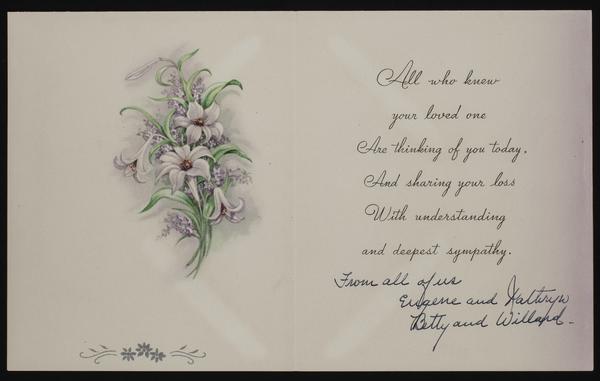 All who knew
your loved one
Are thinking of you today,
And sharing your loss
With understanding
and deepest sympathy.
From all of us
Eugene and Kathryn
Betty and Willard-